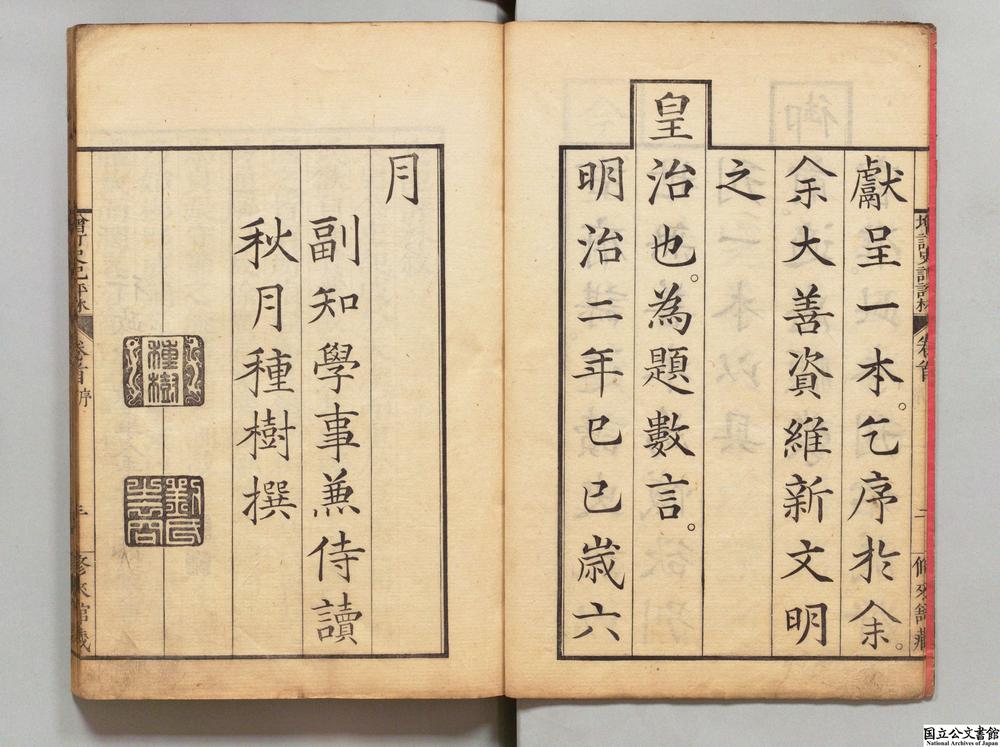 獻呈一本。乞序於余。
余大善資維新文明
之
皇
治也。為題數言。
明治二年己巳歲六
月
副知學事兼侍讀
秋月種樹撰
種樹
增訂史記評林
卷首
二
脩來館藏
增訂史記評林
卷首 序
脩來館藏
国立公文書館
National Archives of Japan